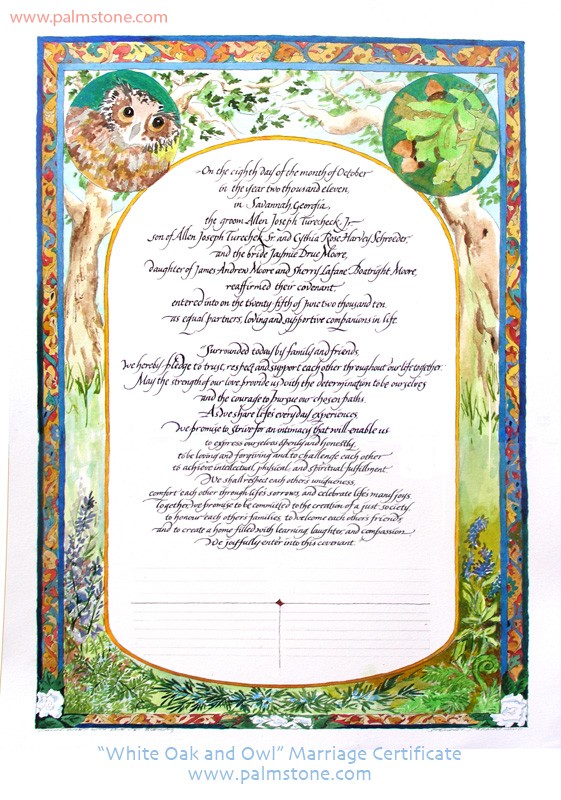 www.palmstone.com
On the eighth day of the month of October
in the year two thousand eleven,
in Savannah, Georgia
the groom Allen Joseph Turecheck Jr.,
son of Allen Joseph Turechek Sr. and Cythia Rose Harvey Schroeder,
and the bride Jaymie Drue Moore,
daughter of James Andrew Moore and Sherry LaJane Boatright Moore,
reaffirmed their covenant,
entered into on the twenty fifth of June two thousand ten
as equal partners, loving and supportive companions in life.
Surrounded today by family and friends,
We hereby pledge to trust, respect and support each other throughout our life together.
May the strength of our love provide us with the determination to be ourselves
and the courage to pursue our chosen paths.
As we share life's everyday experiences,
we promise to strive for an intimacy that will enable us
to express ourselves openly and honestly,
to be loving and forgiving and to challenge each other
to achieve intellectual, physical, and spiritual fulfillment.
We shall respect each other's uniqueness,
comfort each other through life's sorrows, and celebrate life's many joys.
Together we promise to be committed to the creation of a just society,
to honour each other's families, to welcome each other's friends,
and to create a home filled with learning, laughter, and compassion.
We joyfully enter into this covenant.
"White Oak and Owl" Marriage Certificate
www.palmstone.com